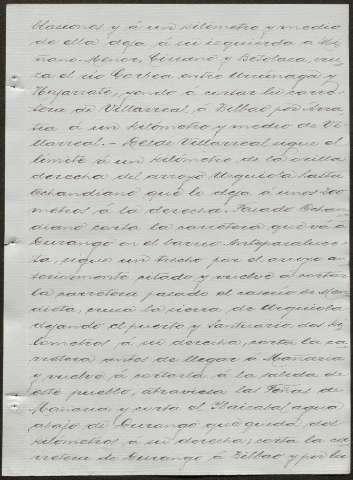 Nasiones y á un kilómetro y medio
de ella deja á su izquierda á Mi-
ñano-Menor, Ciriano y Betolaza, cru-
za el río Gorbea entre Urrúnaga y
Nafarrate, yendo á cortar la carre-
tera de Villarreal á Bilbao por Arra-
tia á un kilómetro y medio de Vi-
llarreal. - Desde Villarreal sigue el
límite á un kilómetro de la orilla
derecha del arroyo Urquiola hasta
Ochandiano que lo deja á unos 200
metros á la derecha. Pasado Ochan-
diano corta la carretera que vá á
Durango en el barrio
sigue un trecho por el arroyo an-
teriormente citado y vuelve á cortar
la carretera pasado el caserío de
cruza la sierra de Urquiola
dejando el puerto y Santuario dos ki-
lómetros á su derecha, corta la ca-
rretera antes de llegar á Mañaria
y vuelve á cortarla á la salida de
este pueblo, atraviesa las Peñas de
Mañaria y corta el Ibaizabal, agua
abajo de Durango que queda dos
kilómetros á su derecha; corta la ca-
rretera de Durango á Bilbao y por la